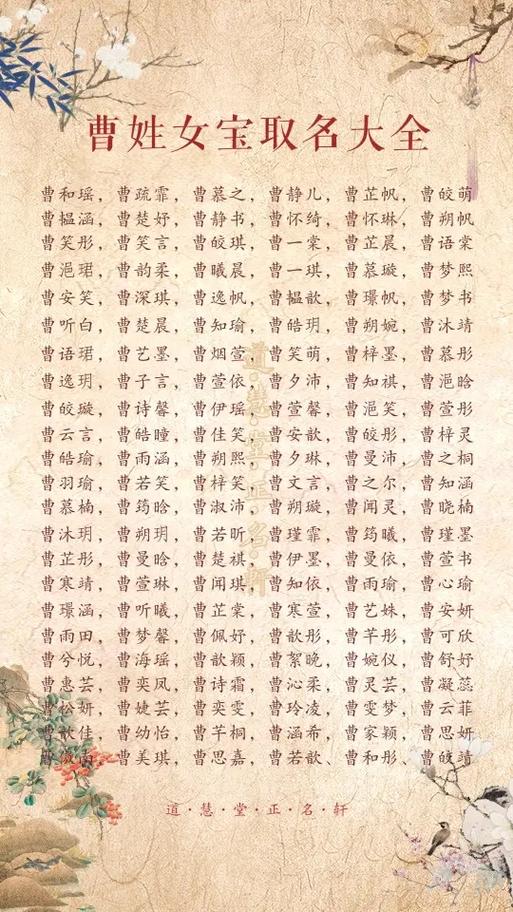 曹姓女宝取名大全
曹和瑶，曹疏霏，曹慕之，曹静儿，曹芷帆，曹皎萌
曹揾涵，曹楚妤，曹静书，曹怀绮，曹怀琳，曹朔帆
曹笑彤，曹笑言，曹皎琪，曹一棠，曹芷晨，曹语棠
曹浥珺，曹韵柔，曹曦晨，曹一琪，曹慕璇，曹梦熙
曹安笑，曹深琪，曹逸帆，曹揾歆，曹璟帆，曹梦书
曹听白，曹楚晨，曹知瑜，曹皓玥，曹朔婉，曹沐靖
曹语珺，曹艺墨，曹烟萱，曹笑萌，曹梓墨，曹慕彤
曹逸玥，曹子言，曹萱依，曹夕沛，曹知祺，曹浥晗
曹皎璇，曹诗馨，曹伊瑶，曹萱馨，曹浥笑，曹萱彤
曹云言，曹皓瞳，曹佳笑，曹安歆，曹皎彤，曹梓灵
曹皓瑜，曹雨涵，曹朔熙，曹夕琳，曹曼沛，曹之桐
曹羽瑜，曹若笑，曹梓笑，曹文言，曹之尔，曹知涵
曹慕楠，曹筠晗，曹淑沛，曹朔璇，曹闻灵，曹晓楠
曹沐玥，曹朔玥，曹若昕，曹瑾霏，曹筠曦，曹瑾墨
曹芷彤，曹曼晗，曹楚祺，曹伊墨，曹曼依，曹萱书
曹寒靖，曹萱琳，曹闻琪，曹知依，曹雨瑜，曹心瑜
曹璟涵，曹听曦，曹芷棠，曹寒萱，曹艺姝，曹安妍
曹雨田，曹梦馨，曹佩妤，曹歆彤，曹芊彤，曹可欣
曹兮悦，曹海瑶，曹歆颖，曹絮晚，曹婉仪，曹舒妤
曹惠芸，曹奕凤，曹诗霜，曹沁柔，曹灵芸，曹凝蕊
曹松妍，曹婕芸，曹奕雯，曹玲凌，曹雯梦，曹云菲
曹歆佳，曹幼怡，曹芊桐，曹涵布，曹家颖，曹思妍
曹美琪，曹思嘉，曹若歆、曹和彤、曹皎靖
道·慧·堂·正·名·轩
道·慧·堂·正·名·轩